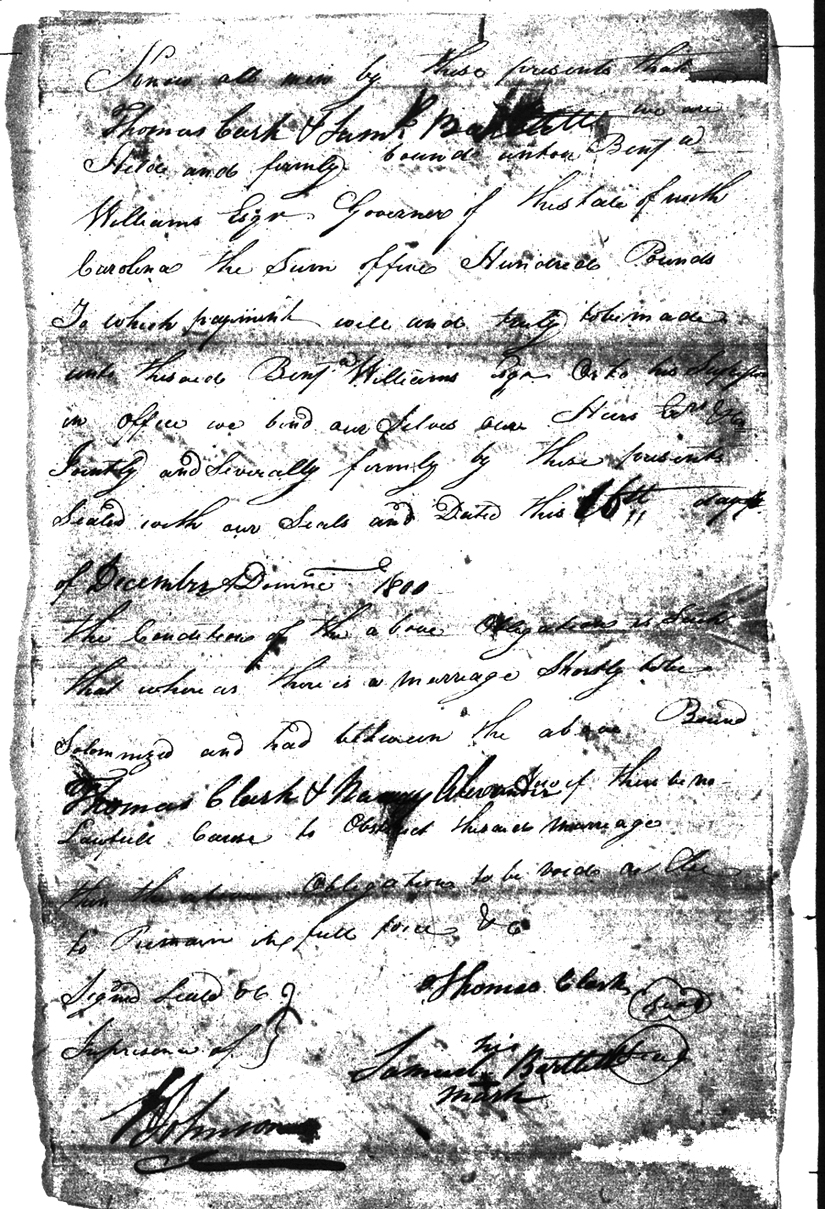 Know all men by these presents that
Thomas Clark & Saml Bartlett we are
Held and firmly bound untoo Benja
Williams Esqr Governer of thistate of north
Carolina the Sum offive Hundred Pounds
To which payment well and truly tobemade
unto thesaid Benja Williams Esqr Or to his
in office we bind ourSelves our Heirs
Jointly andSeverally firmly by these presents
Sealed with our Seals and Dated this 16th day of
of December ADomine 1800
the Condition of the above Obligation is Such
that where as there is a marriage Shortly tobe
Solemnized and had between the above Bound
Thomas Clark & Nancy Alexander if there be no
Lawfull Cause to Obstruct thesaid marriage
then the above Obligation to be void or Else
to Remain in full force &C
Signd Seald &C
Inpresence of
Thomas Clark Seal
his
Samuel Bartlett Seal
mark
Johnson